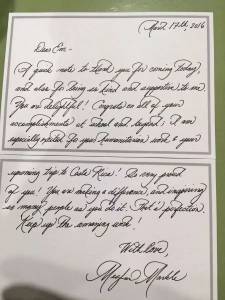 April 17th, 2016
Dear Em -
A quick note to thank you for coming today,
and also for being so kind and supportive to me.
You are delightful! Congrats on all of your
accomplishments at school and beyond! I am
especially excited for your humanitarian work & your
upcoming trip to Costa Rica! So very proud
of you! You are making a difference, and inspiring
so many people as you do it. That is perfection.
Keep up the amazing work!
With Love,
Meghan Markle